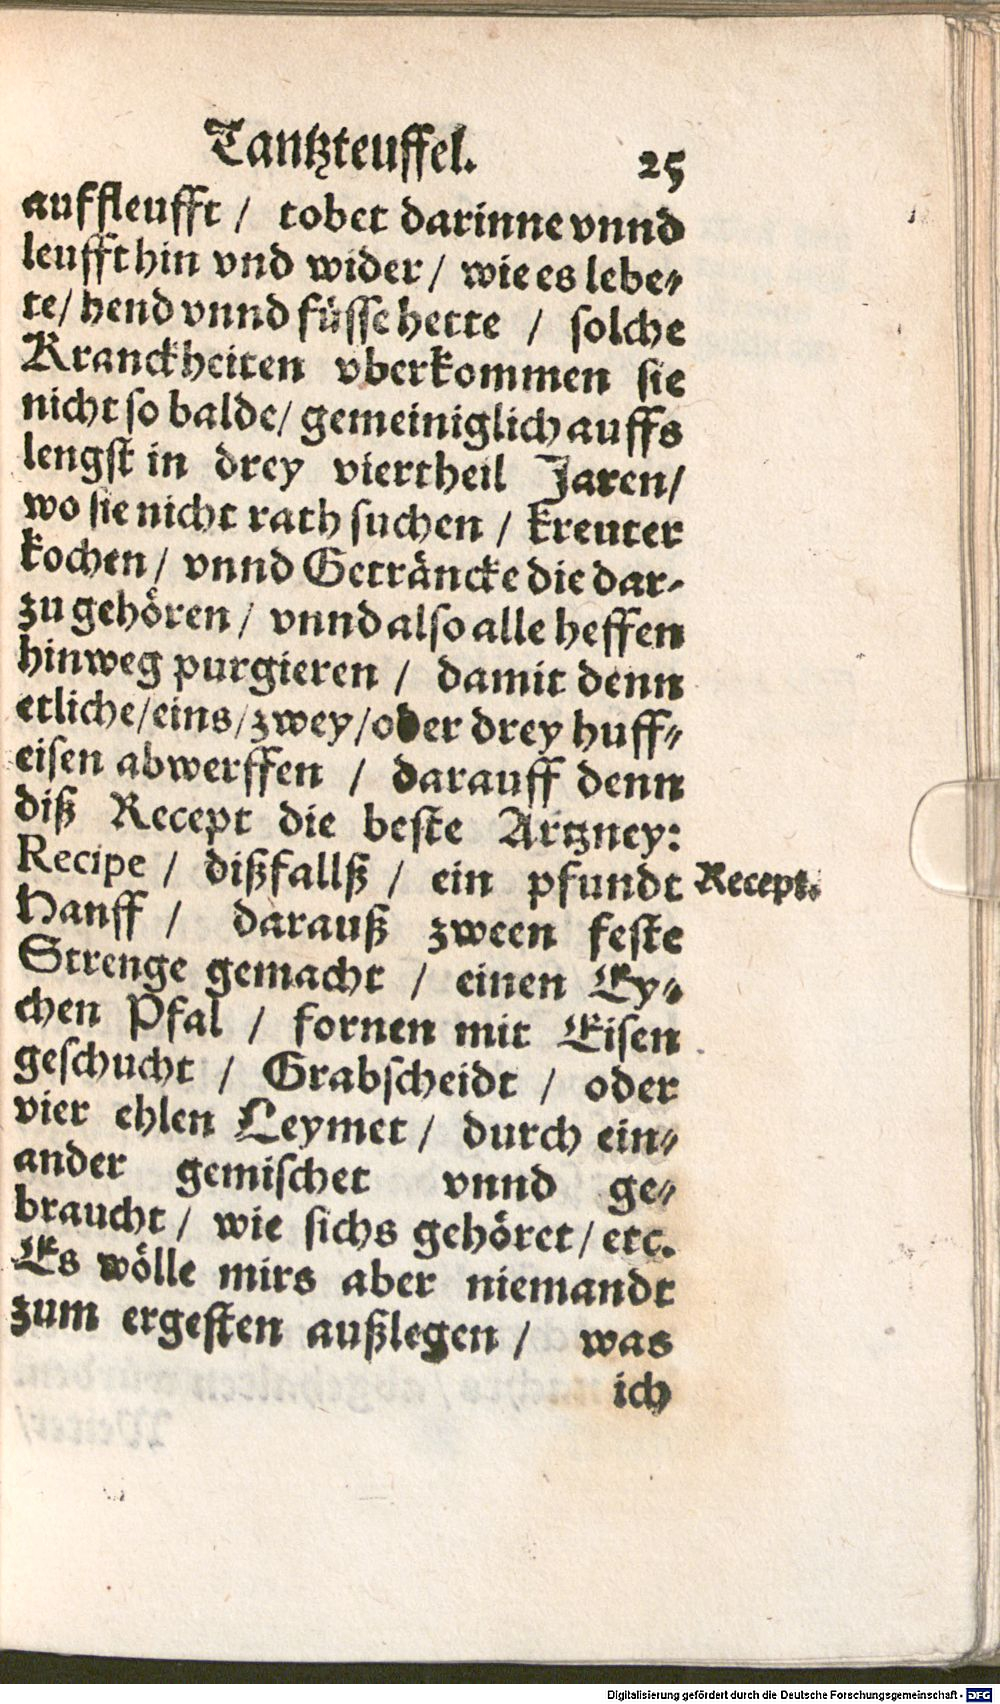 Tantzteuffel. 25
auffleufft / tobet darinne vnnd
leufft hin vnd wider / wie es lebe⸗
te / hend vnnd füsse hette / solche
Kranckheiten vberkommen sie
nicht so balde / gemeiniglich auffs
lengst in drey viertheil Jaren /
wo sie nicht rath suchen / kreuter
kochen / vnnd Geträncke die dar⸗
zu gehören / vnnd also alle heffen
hinweg purgieren / damit denn
etliche / eins / zwey / oder drey huff⸗
eisen abwerffen / darauff denn
diß Recept die beste Artzney:
Recipe / dißfallß / ein pfundt Recept.
Hanff / darauß zween feste
Strenge gemacht / einen Ey⸗
chen Pfal / fornen mit Eisen
geschucht / Grabscheidt / oder
vier ehlen Leymet / durch ein⸗
ander gemischet vnnd ge⸗
braucht / wie sichs gehöret / etc.
Es wölle mirs aber niemandt
zum ergesten außlegen / was
ich
Digitalisierung gefördert durch die Deutsche Forschungsgemeinschaft - DFG